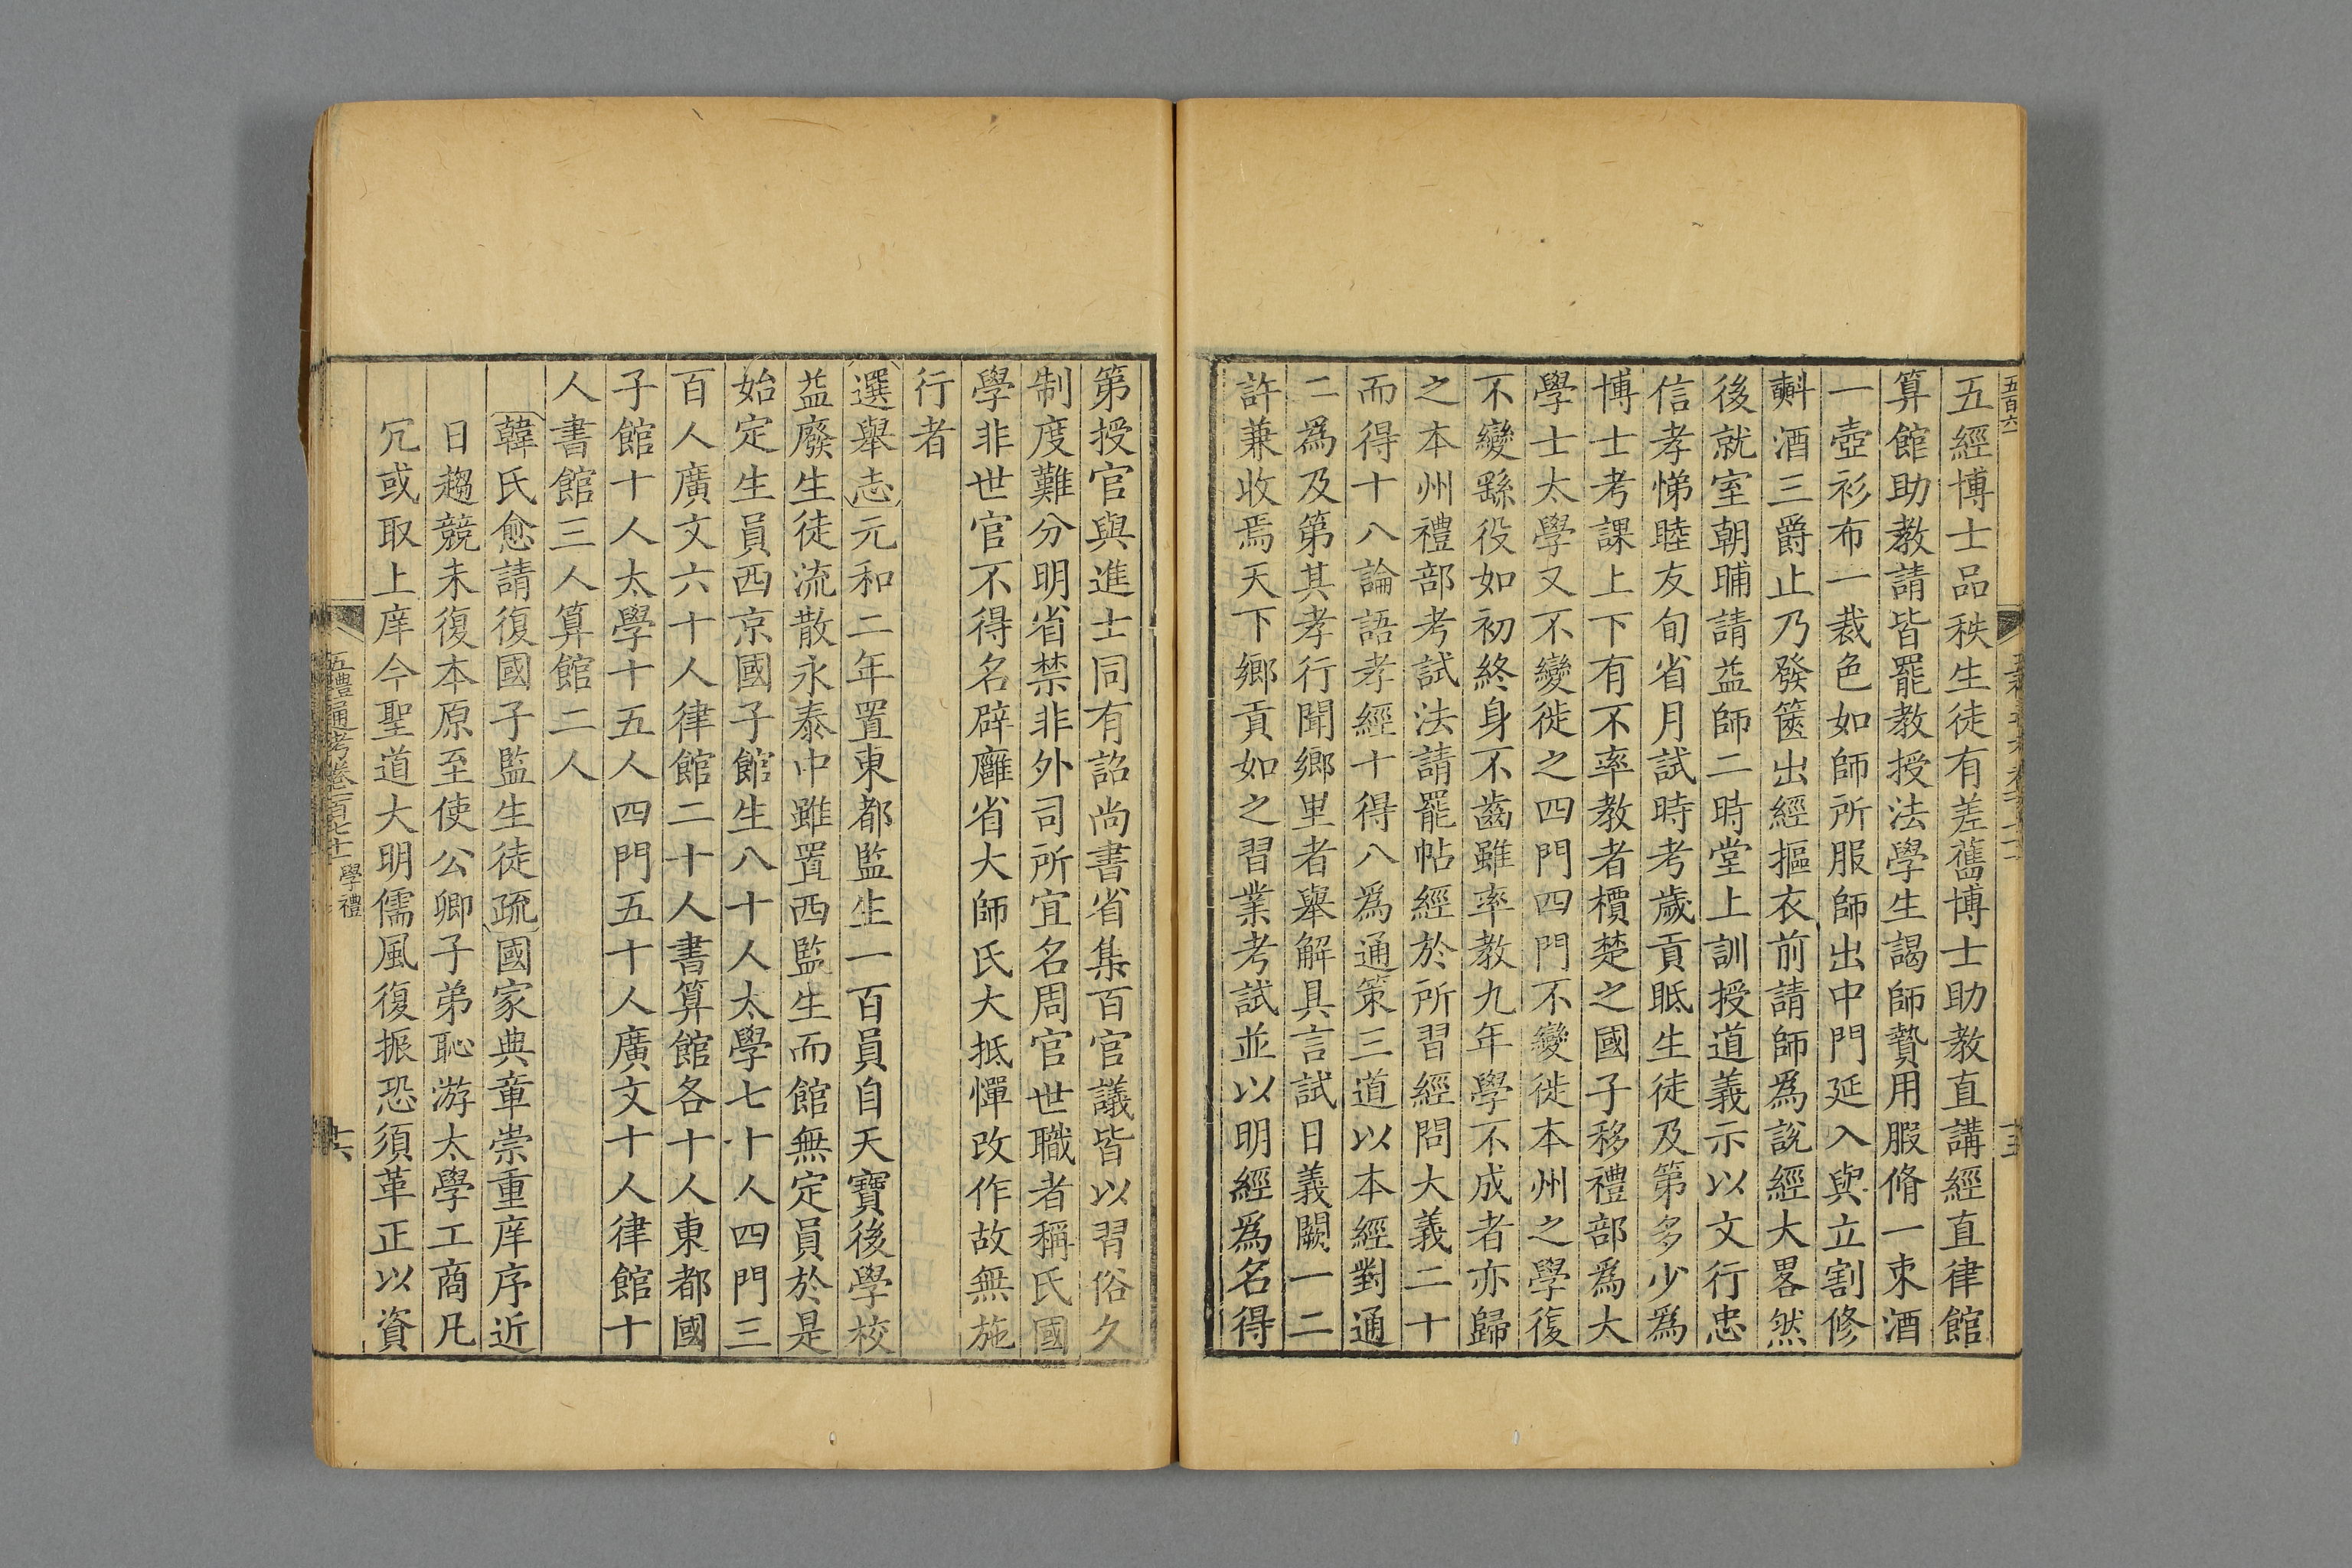 五百六
五經博士品秩生徒有差舊博士助教直講經直律館
算館助教請皆罷教授法學生謁師贄用腶脩一束酒
一壺衫布一裁色如師所服師出中門延入與立割修
斞酒三爵止乃發篋出經摳衣前請師爲說經大畧然
後就室朝晡請益師二時堂上訓授道義示以文行忠
信孝悌睦友旬省月試時考歲貢眂生徒及第多少爲
博士考課上下有不率教者檟楚之國子移禮部爲大
學士太學又不變徙之四門四門不變徙本州之學復
不變繇役如初終身不齒雖率教九年學不成者亦歸
之本州禮部考試法請罷帖經於所習經問大義二十
而得十八論語孝經十得八爲通策三道以本經對通
二爲及第其孝行聞鄉里者舉解具言試日義闕一二
許兼收焉天下鄉貢如之習業考試並以明經爲名得
第授官與進士同有詔尚書省集百官議皆以習俗久
制度難分明省禁非外司所宜名周官世職者稱氏國
學非世官不得名辟廱省大師氏大抵憚改作故無施
行者
選舉志元和二年置東都監生一百員自天寶後學校
益廢生徒流散永泰中雖置西監生而館無定員於是
始定生員西京國子館生八十人太學七十人四門三
百人廣文六十人律館二十人書算館各十人東都國
子館十人太學十五人四門五十人廣文十人律館十
人書館三人算館二人
韓氏愈請復國子監生徒疏國家典章崇重庠序近
日趨競未復本原至使公卿子弟恥游太學工商凡
冗或取上庠今聖道大明儒風復振恐須革正以資
五禮通考卷一百七十一 學禮
十六